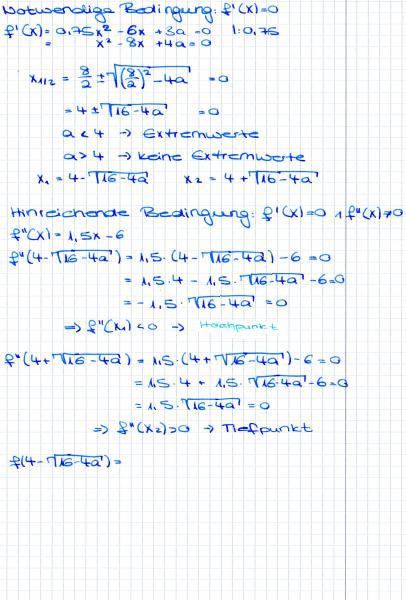 Notwendige Bedingung: f'(x)=0
f'(x) = 0,75x² - 6x + 3a = 0 |:0,75
= x² - 8x + 4a = 0
x1/2 = 8/2 ± √((8/2)² - 4a) = 0
= 4 ± √(16-4a) = 0
a < 4 → Extremwerte
a > 4 → keine Extremwerte
x₁ = 4 - √(16-4a) x₂ = 4 + √(16-4a)
Hinreichende Bedingung: f'(x)=0 ∧ f''(x)≠0
f''(x) = 1,5x - 6
f''(4-√(16-4a)) = 1,5·(4-√(16-4a)) - 6 = 0
= 1,5·4 - 1,5·√(16-4a) - 6 = 0
= -1,5·√(16-4a) = 0
⇒ f''(x₁) < 0 → Hochpunkt
f''(4+√(16-4a)) = 1,5·(4+√(16-4a)) - 6 = 0
= 1,5·4 + 1,5·√(16-4a) - 6 = 0
= 1,5·√(16-4a) = 0
⇒ f''(x₂) > 0 → Tiefpunkt
f(4-√(16-4a)) =